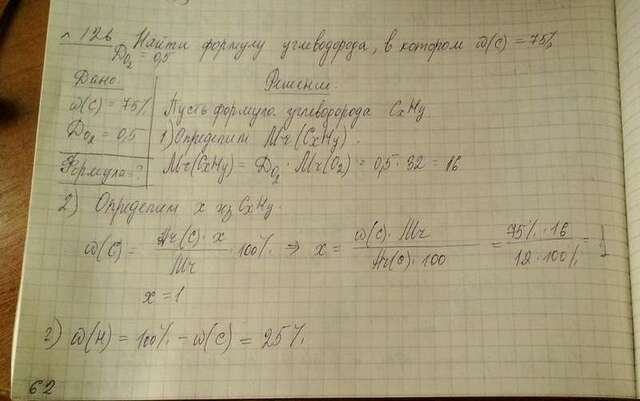 12в Найти формулу углеводорода, в котором ω(C) = 75%
D_O₂ = 0,5
Дано
ω(C) = 75%
D_O₂ = 0,5
Формула - ?
Решение
Пусть формула углеводорода CxHy
1) Определим Mr(CxHy).
Mr(CxHy) = D_O₂ · Mr(O₂) = 0,5 · 32 = 16
2) Определим x из CxHy.
ω(C) = Ar(C)·x / Mr · 100% ⇒ x = ω(C)·Mr / Ar(C)·100 = 75%·16 / 12·100% = 1
x = 1
2) ω(H) = 100% - ω(C) = 25%
62